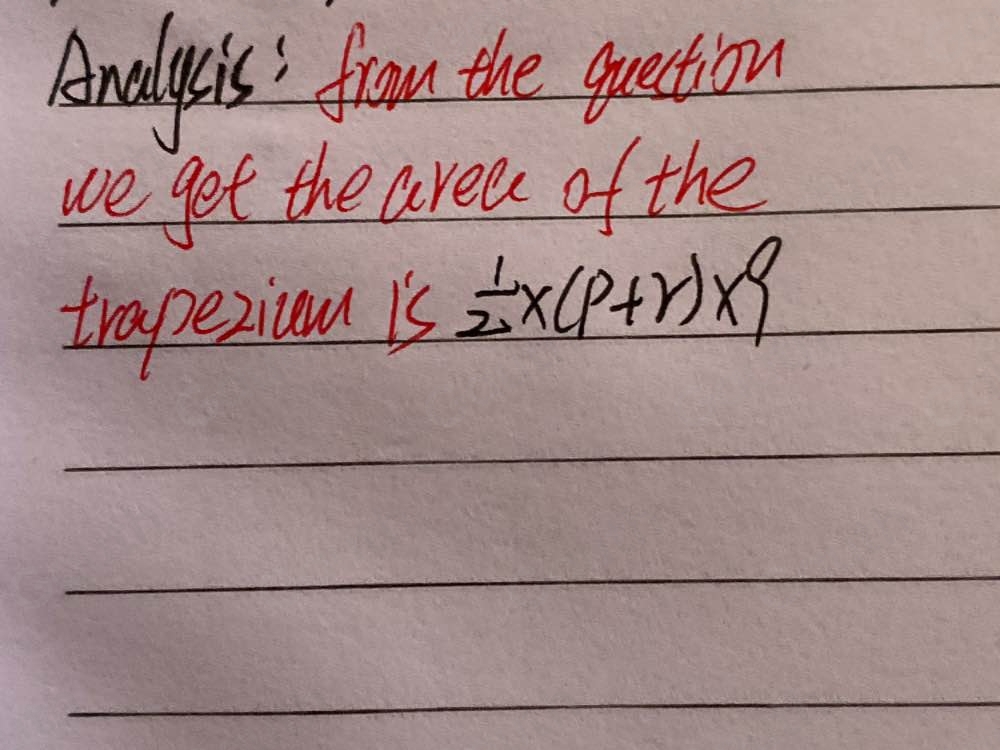 Analysis: from the question
we get the area of the
trapezium is \frac{1}{2}×(p+r)×q